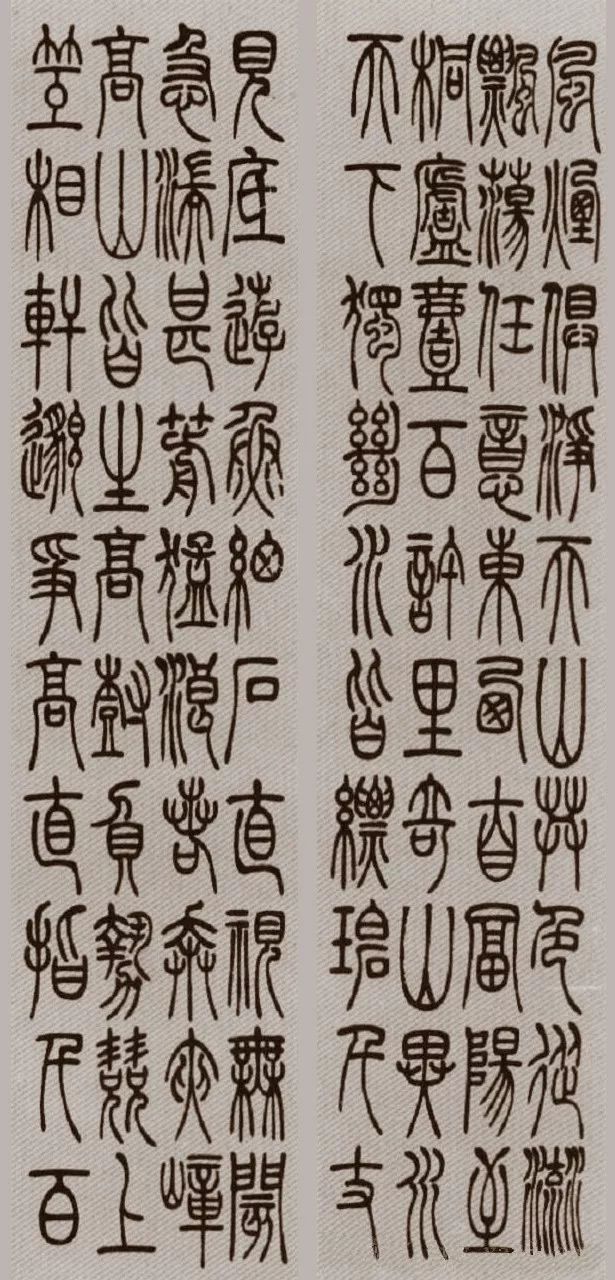 風煙俱淨天山共色從流
飄蕩任意東西自富陽至
桐廬壹百許里奇山異水
天下獨絕水皆縹碧千丈
見底遊魚細石直視無閡
急湍甚箭猛浪若奔夾嶂
高山皆生高樹負勢競上
互相軒邈爭高直指千百